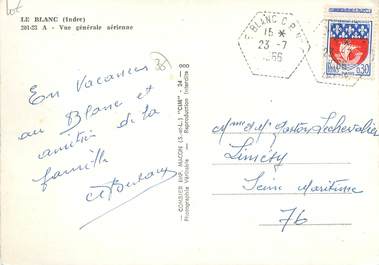 LE BLANC (Indre)
201-23 A - Vue générale aérienne
En Vacances
au Blanc et
amitié de la
famille
COMBIER IMP. MACON (S.-et-L.) "CIM"
Photographie Véritable - Reproduction Interdite
24 - 000
LE BLANC C.P. N°
15 *
23 -7
1966
0,30
Mme & M. Gaston Lechevalier
Limésy
Seine Maritime
76